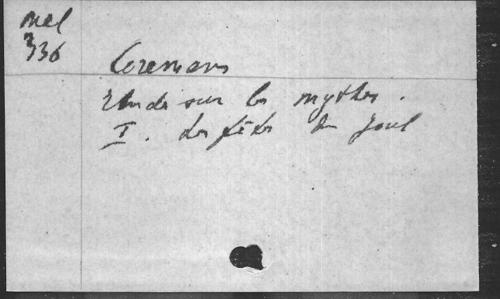 Mel
336
Coremans
Etudes sur les mythes.
I. Les fêtes du Joul